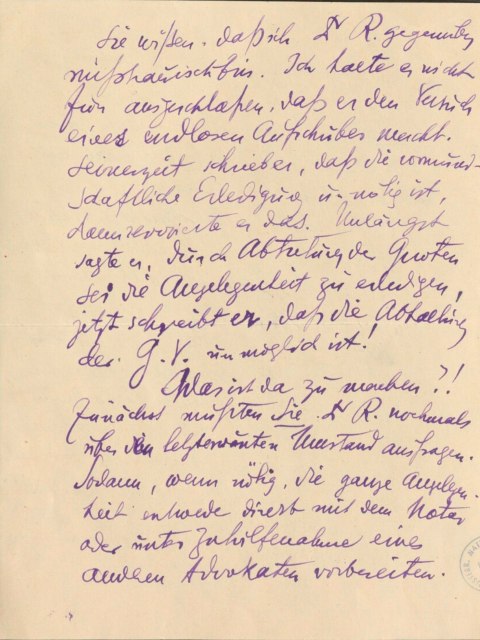 Sie wißen, daß ich Dr R. gegenüber
mißtrauisch bin. Ich halte es nicht
für ausgeschlaßen, daß er den Versuch
eines endlosen Aufschubes macht.
Seinerzeit schrieb er, daß die vormund-
schaftliche Erledigung unnötig ist,
dann er das. Unlängst
sagte er, durch Abtretung der Quoten
sei die Angelegenheit zu erledigen,
jetzt schreibt er, daß die
der G. V. unmöglich ist!
Was ist da zu machen?!
Zunächst müßten Sie Dr R. nochmals
über den letzterwänten Umstand ausfragen.
Sodann, wenn nötig, die ganze Angelegen-
heit entwede direkt mit dem Notar
oder unter Zuhilfenahme eines
anderen Advokaten vorbereiten.